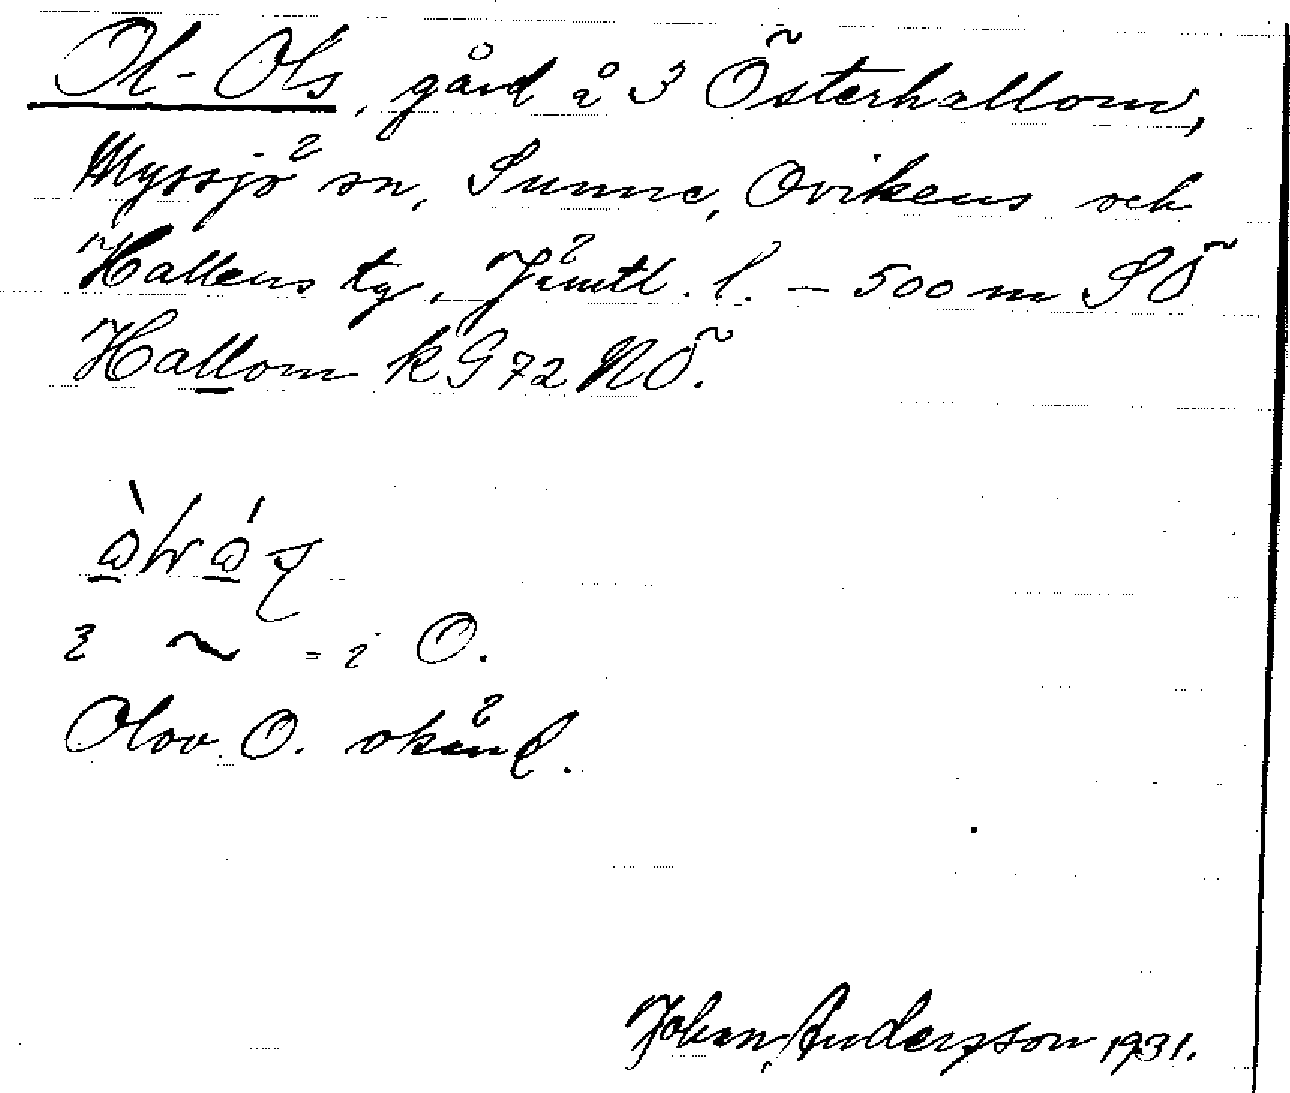 Ol-Ols, gård å 3 Österhallom,
Myssjö sn, Sunne, Ovikens och
Hallens tg, Jämtl. l. – 500 m SÖ
Hallom k G 72 NÖ.
i ~ = i O.
Olov O. okänd.
Johan Andersson 1931.